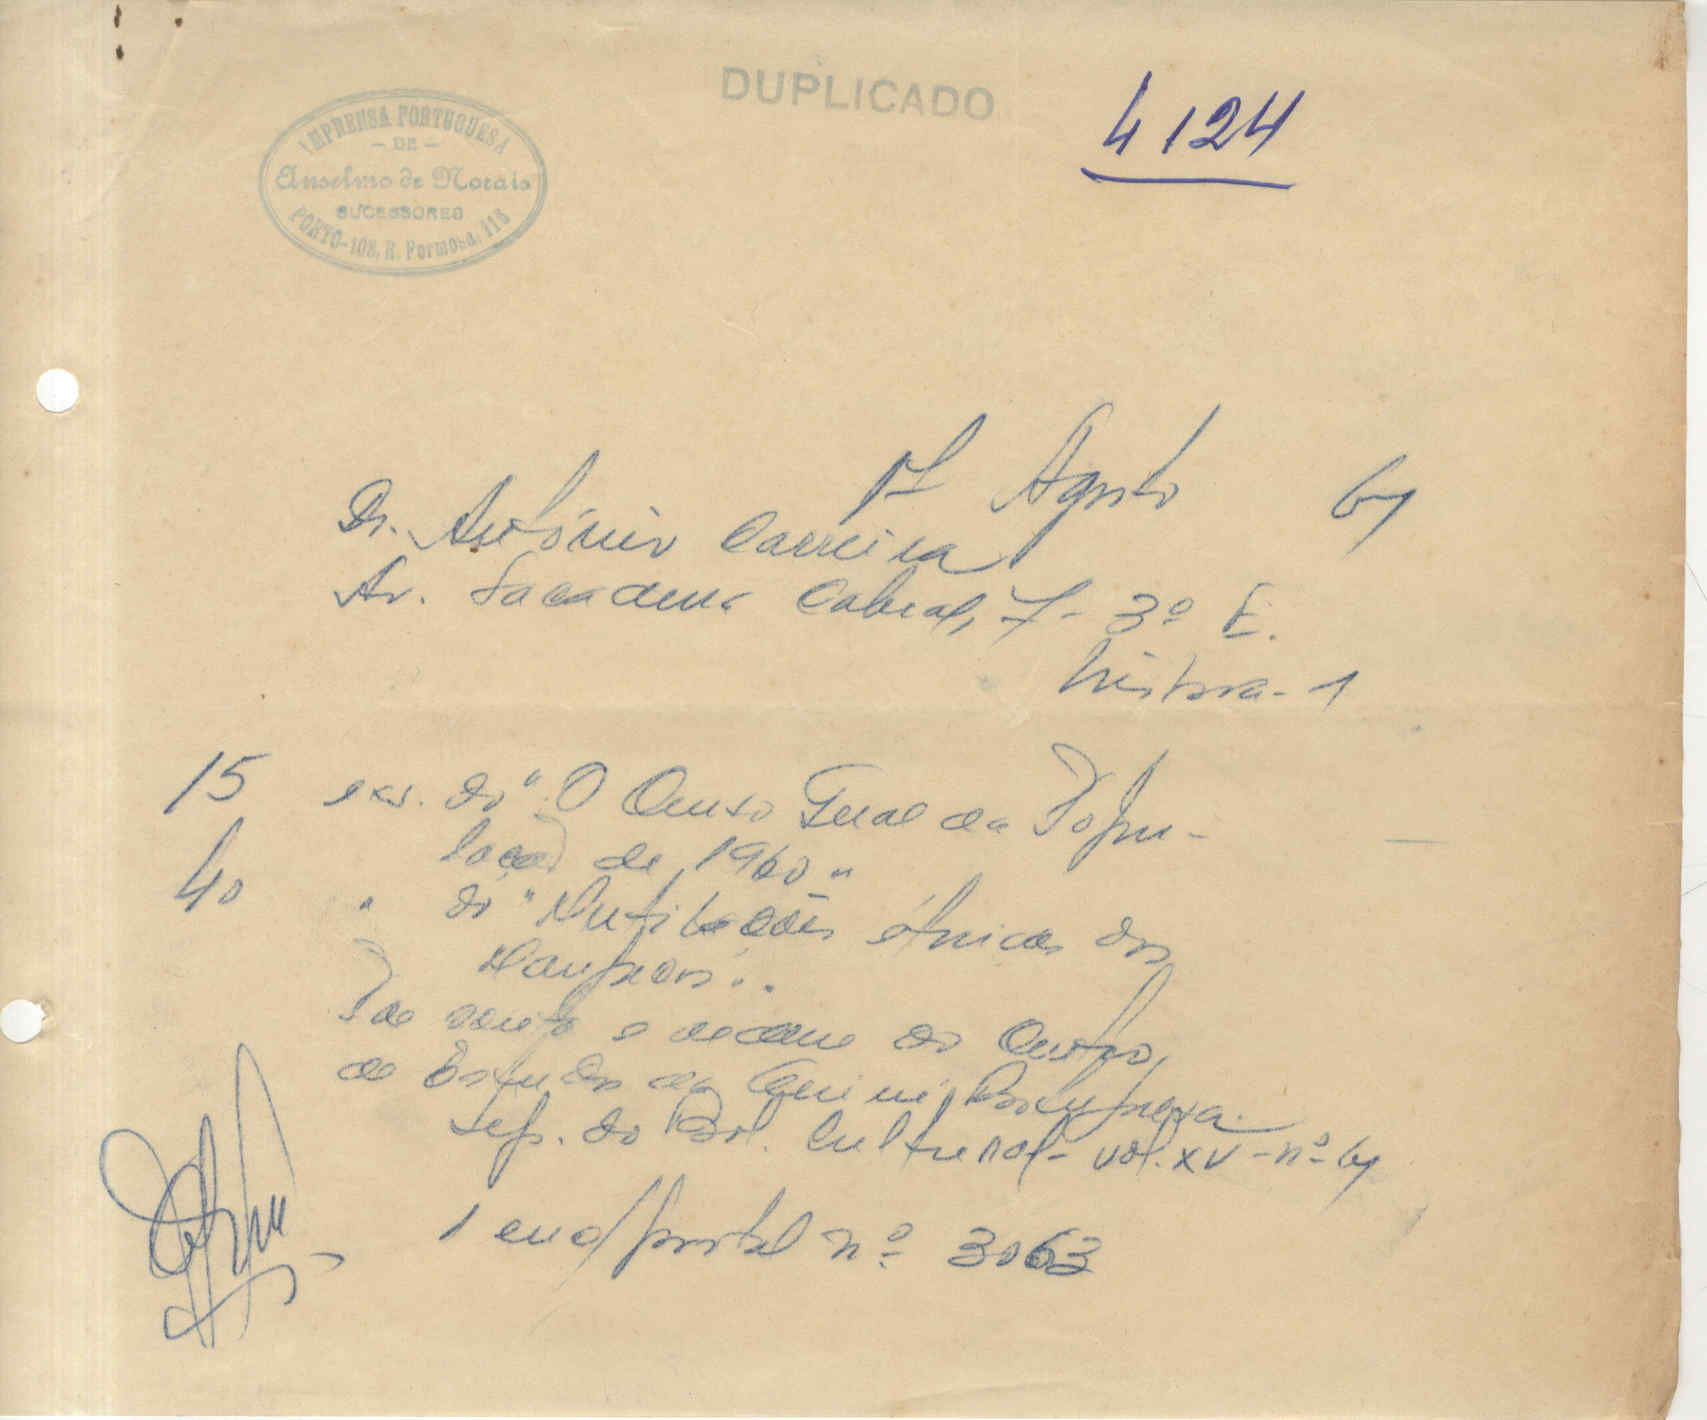 DUPLICADO
4124
IMPRENSA PORTUGUESA
— DE —
Anselmo de Morais
SUCESSORES
PORTO-108, R. Formosa, 116
17 Agosto 61
Dr. António Carreira
Av. Sacadura Cabral, 7- 3º E.
Lisboa - 1
15 exs. do " O Censo Geral da Popu-
lação de 1960 "
40 " do " Mutilações étnicas dos
Manjacos "
Por conta e ordem do Centro
de Estudos da Guiné Portuguesa.
Sep. do Bol. Cultural - vol. XV - nº 61
1 enc/postal nº 3063